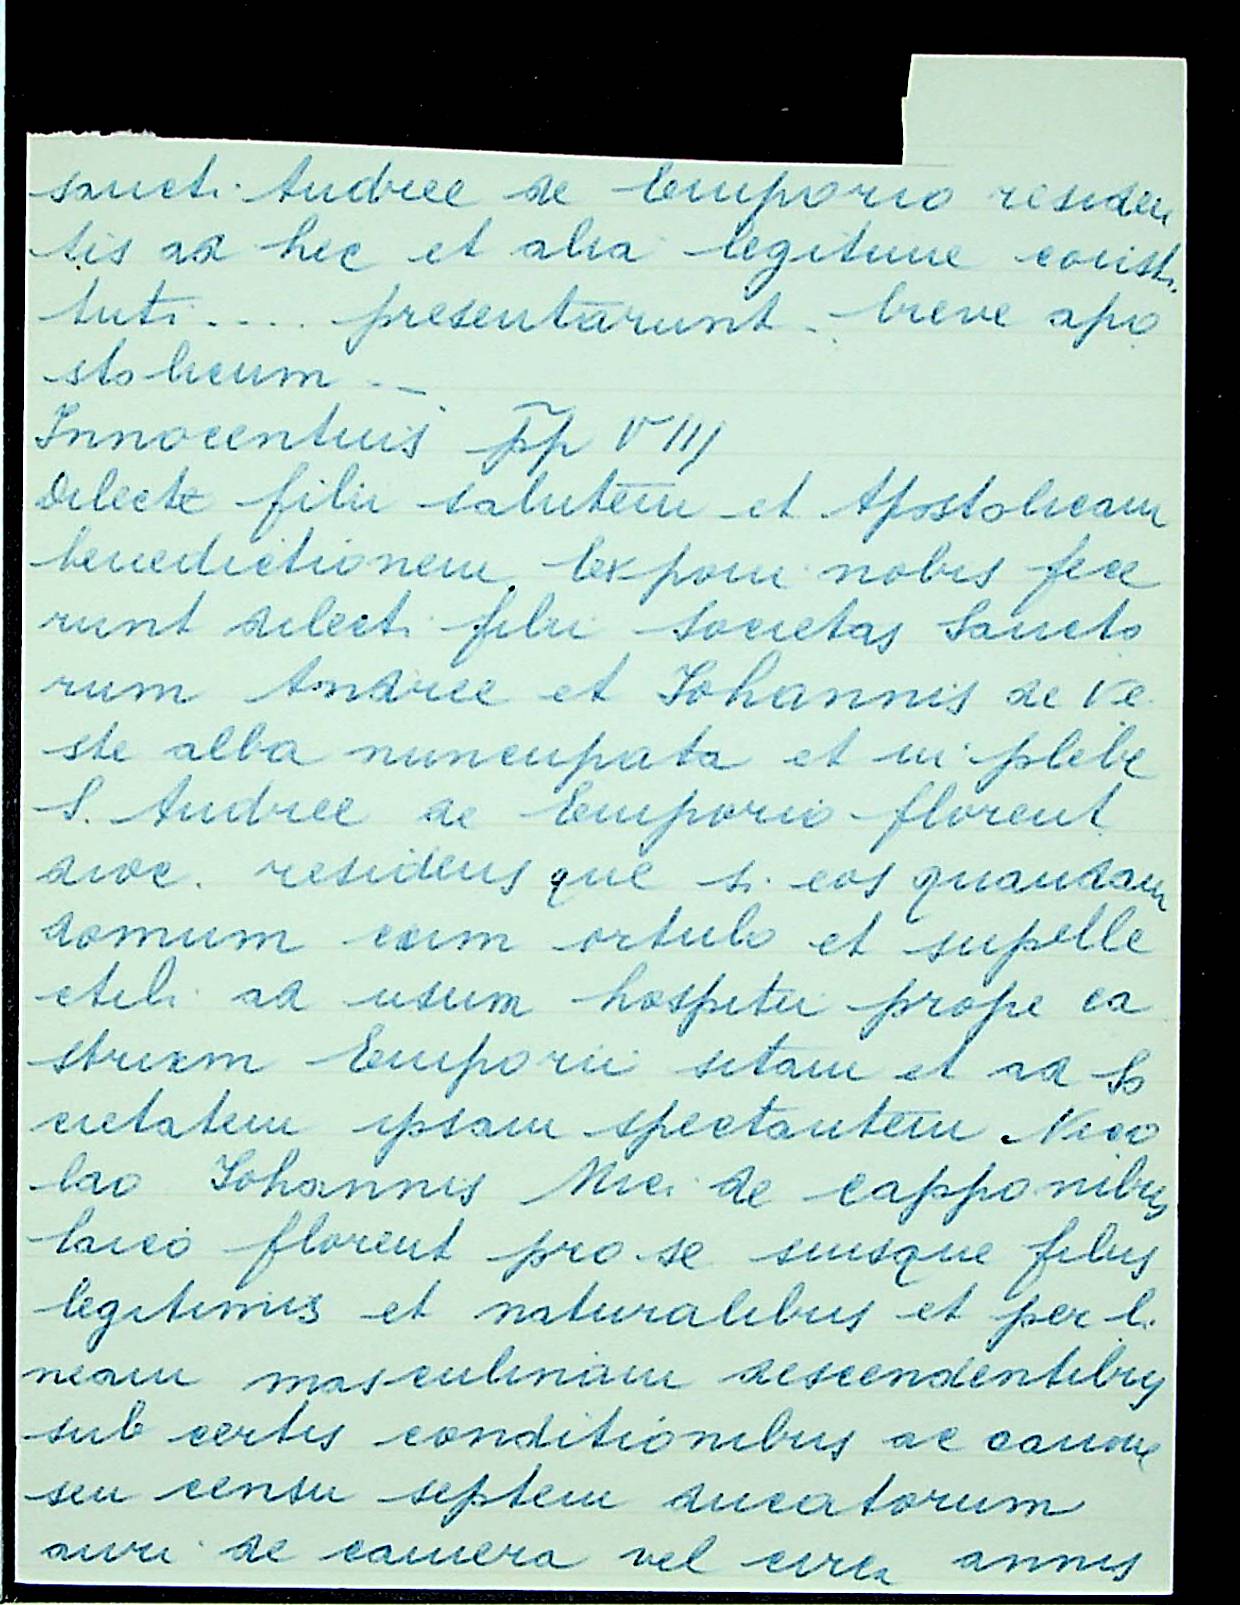 sancti Andree de Emporio residen
tis ad hec et alia legitime consti
tuti .... presentarunt . breve apo
stolicum ..
Innocentius pp VIIJ
Dilecte filii salutem et Apostolicam
benedictionem. Exponi nobis fece
runt dilecti filii Societas Sancto
rum Andree et Johannis de Ve
ste alba nuncupata et in plebe
S. Andree de Emporio florent
dioc. residens que si eos quandam
domum cum ortulo et supelle
ctili ad usum hospitii prope ca
strum Emporii sitam et ad So
cietatem ipsam spectantem Nico
lao Johannis Mici de capponibus
laico florent pro se suisque filiis
legitimis et naturalibus et per li
neam masculinam descendentibus
sub certis conditionibus ac canone
seu censu septem ducatorum
auri de camera vel circa annis